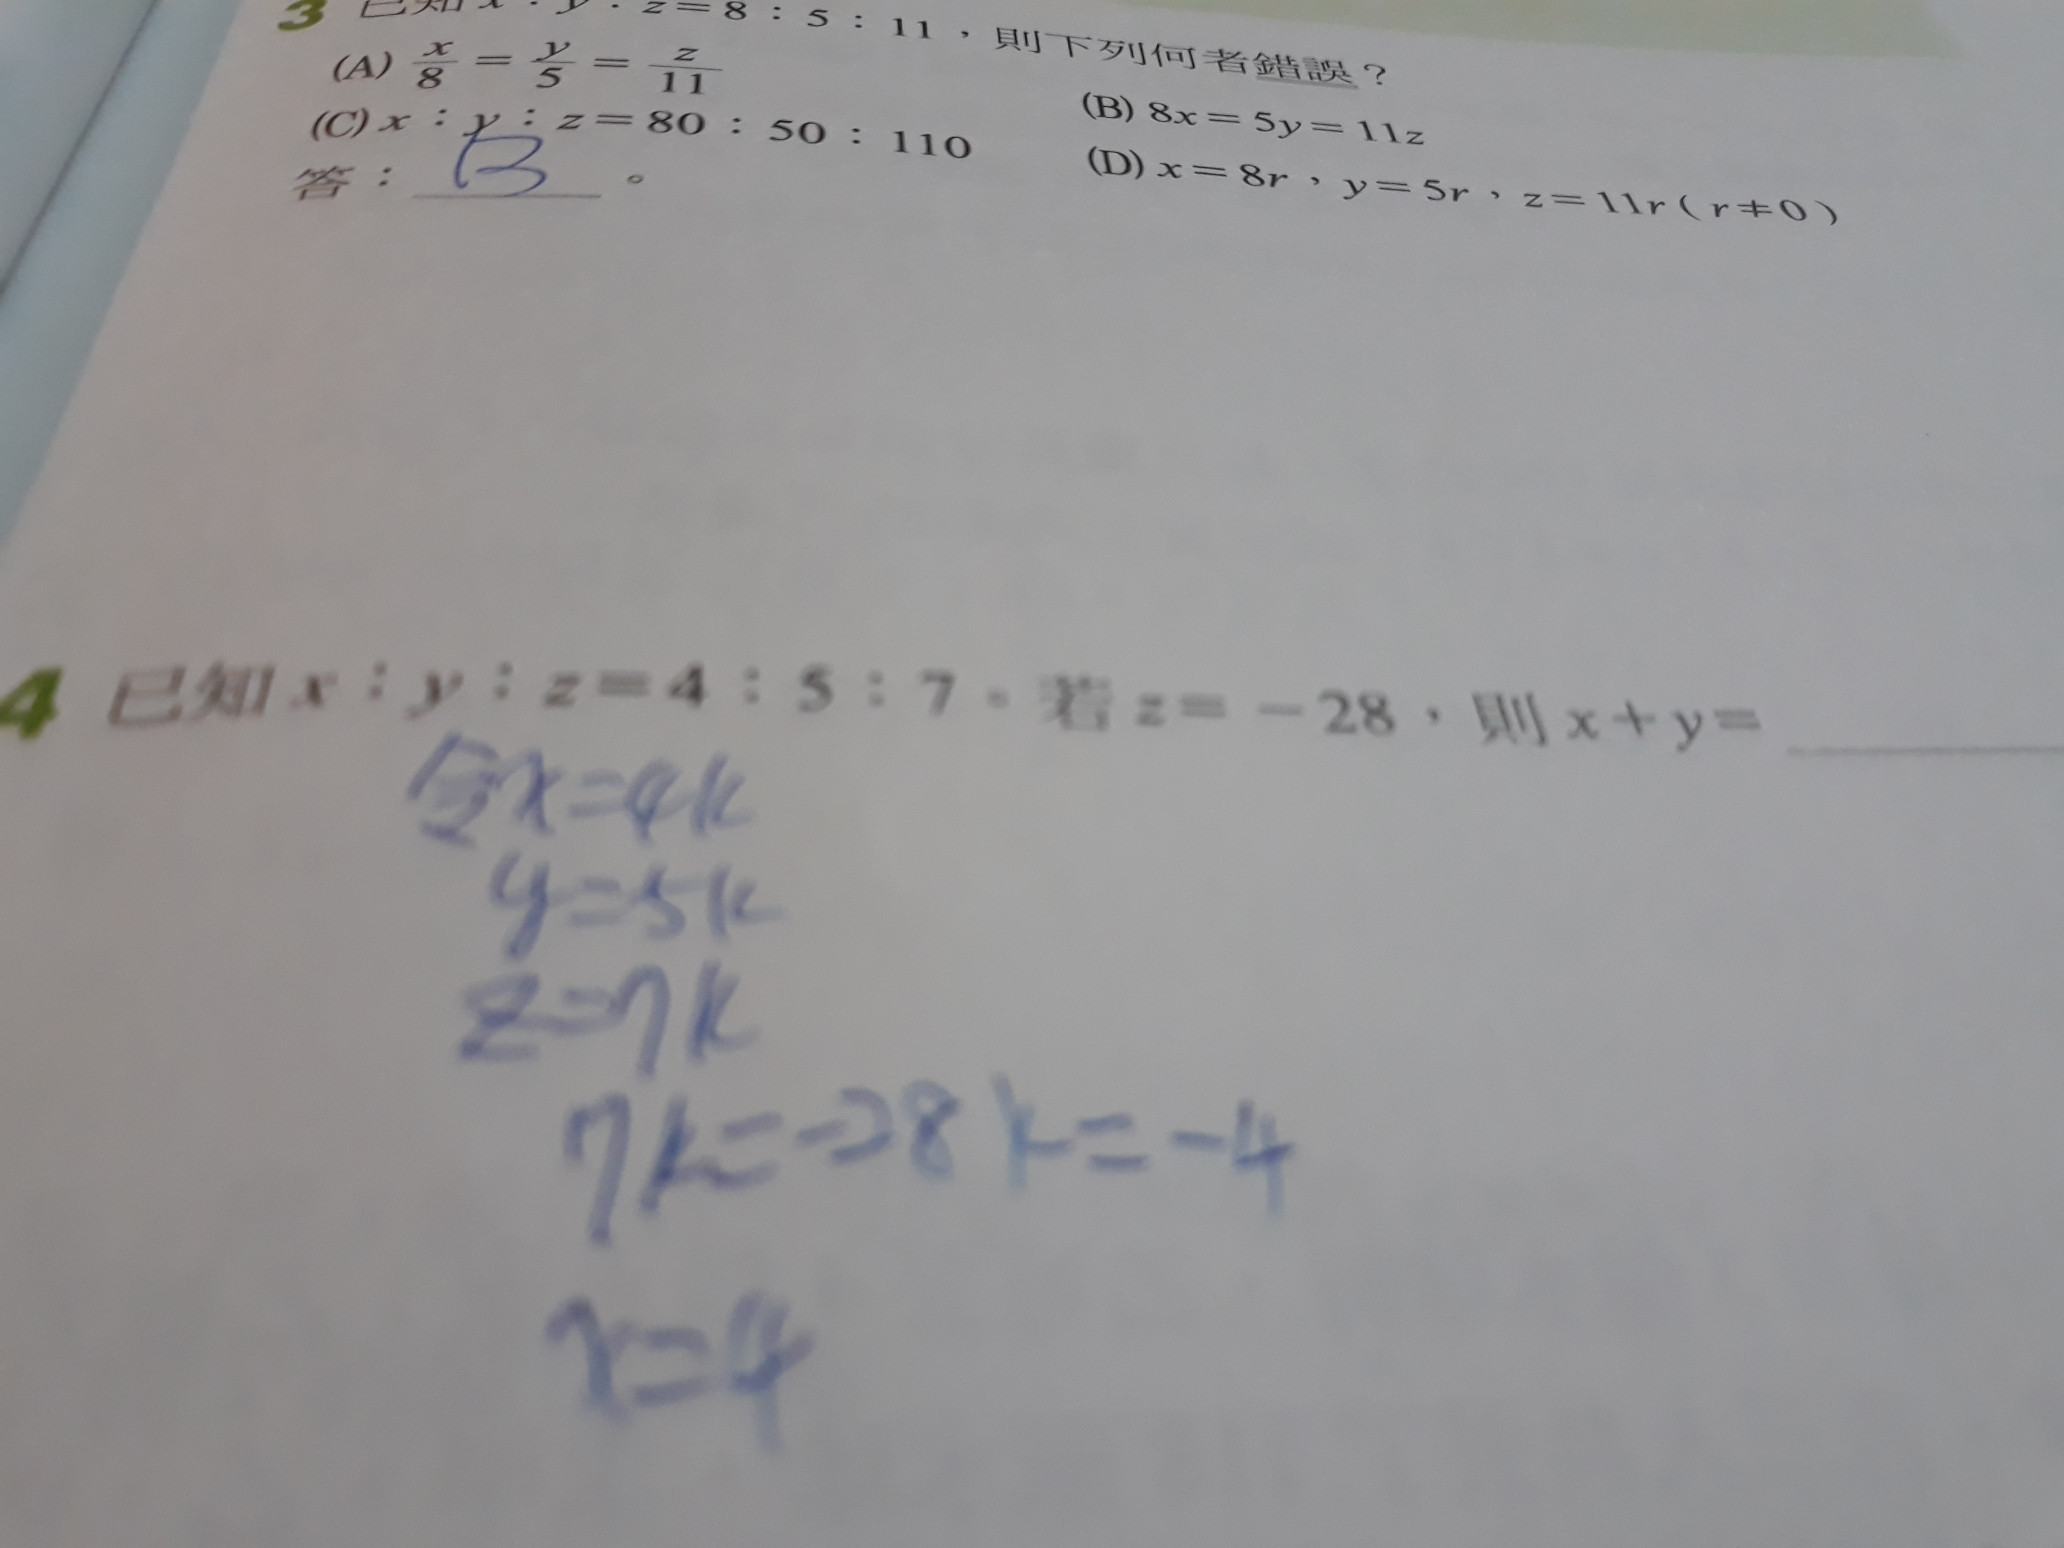 3 已知 x : y : z = 8 : 5 : 11,則下列何者錯誤?
(A) x/8 = y/5 = z/11
(B) 8x = 5y = 11z
(C) x : y : z = 80 : 50 : 110
(D) x = 8r,y = 5r,z = 11r ( r ≠ 0 )
答: B 。
4 已知 x : y : z = 4 : 5 : 7。若 z = -28,則 x + y =
令x=4k
y=5k
z=7k
7k=-28 k=-4
x=4